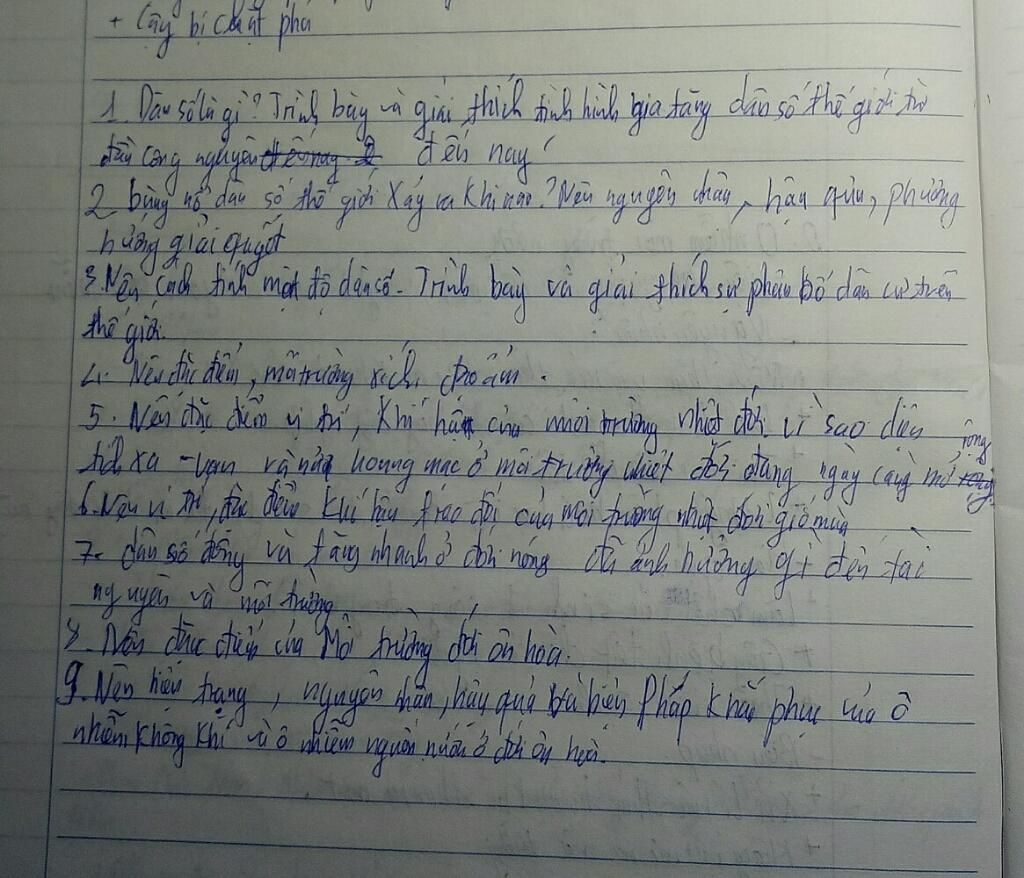 + Cây bị chặt phá
1. Dân số là gì? Trình bày và giải thích tình hình gia tăng dân số thế giới từ
đầu công nguyên đến nay
2 bùng nổ dân số thế giới xảy ra khi nào? Nêu nguyên nhân, hậu quả, phương
hướng giải quyết
3. Nêu cách tính mật độ dân số. Trình bày và giải thích sự phân bố dân cư trên
thế giới.
4. Nêu đặc điểm, môi trường xích đạo ẩm.
5. Nêu đặc điểm vị trí, khí hậu của môi trường nhiệt đới. vì sao diện
tích xa-van và nửa hoang mạc ở môi trường nhiệt đới đang ngày càng mở rộng
6. Nêu vị trí, đặc điểm khí hậu của môi trường nhiệt đới gió mùa
7. dân số đông và tăng nhanh ở đới nóng đã ảnh hưởng gì đến tài
nguyên và môi trường
8. Nêu đặc điểm của Môi trường đới ôn hòa.
9. Nêu hiện trạng, nguyên nhân, hậu quả và biện pháp khắc phục của ô
nhiễm không khí và ô nhiễm nguồn nước ở đới ôn hòa.